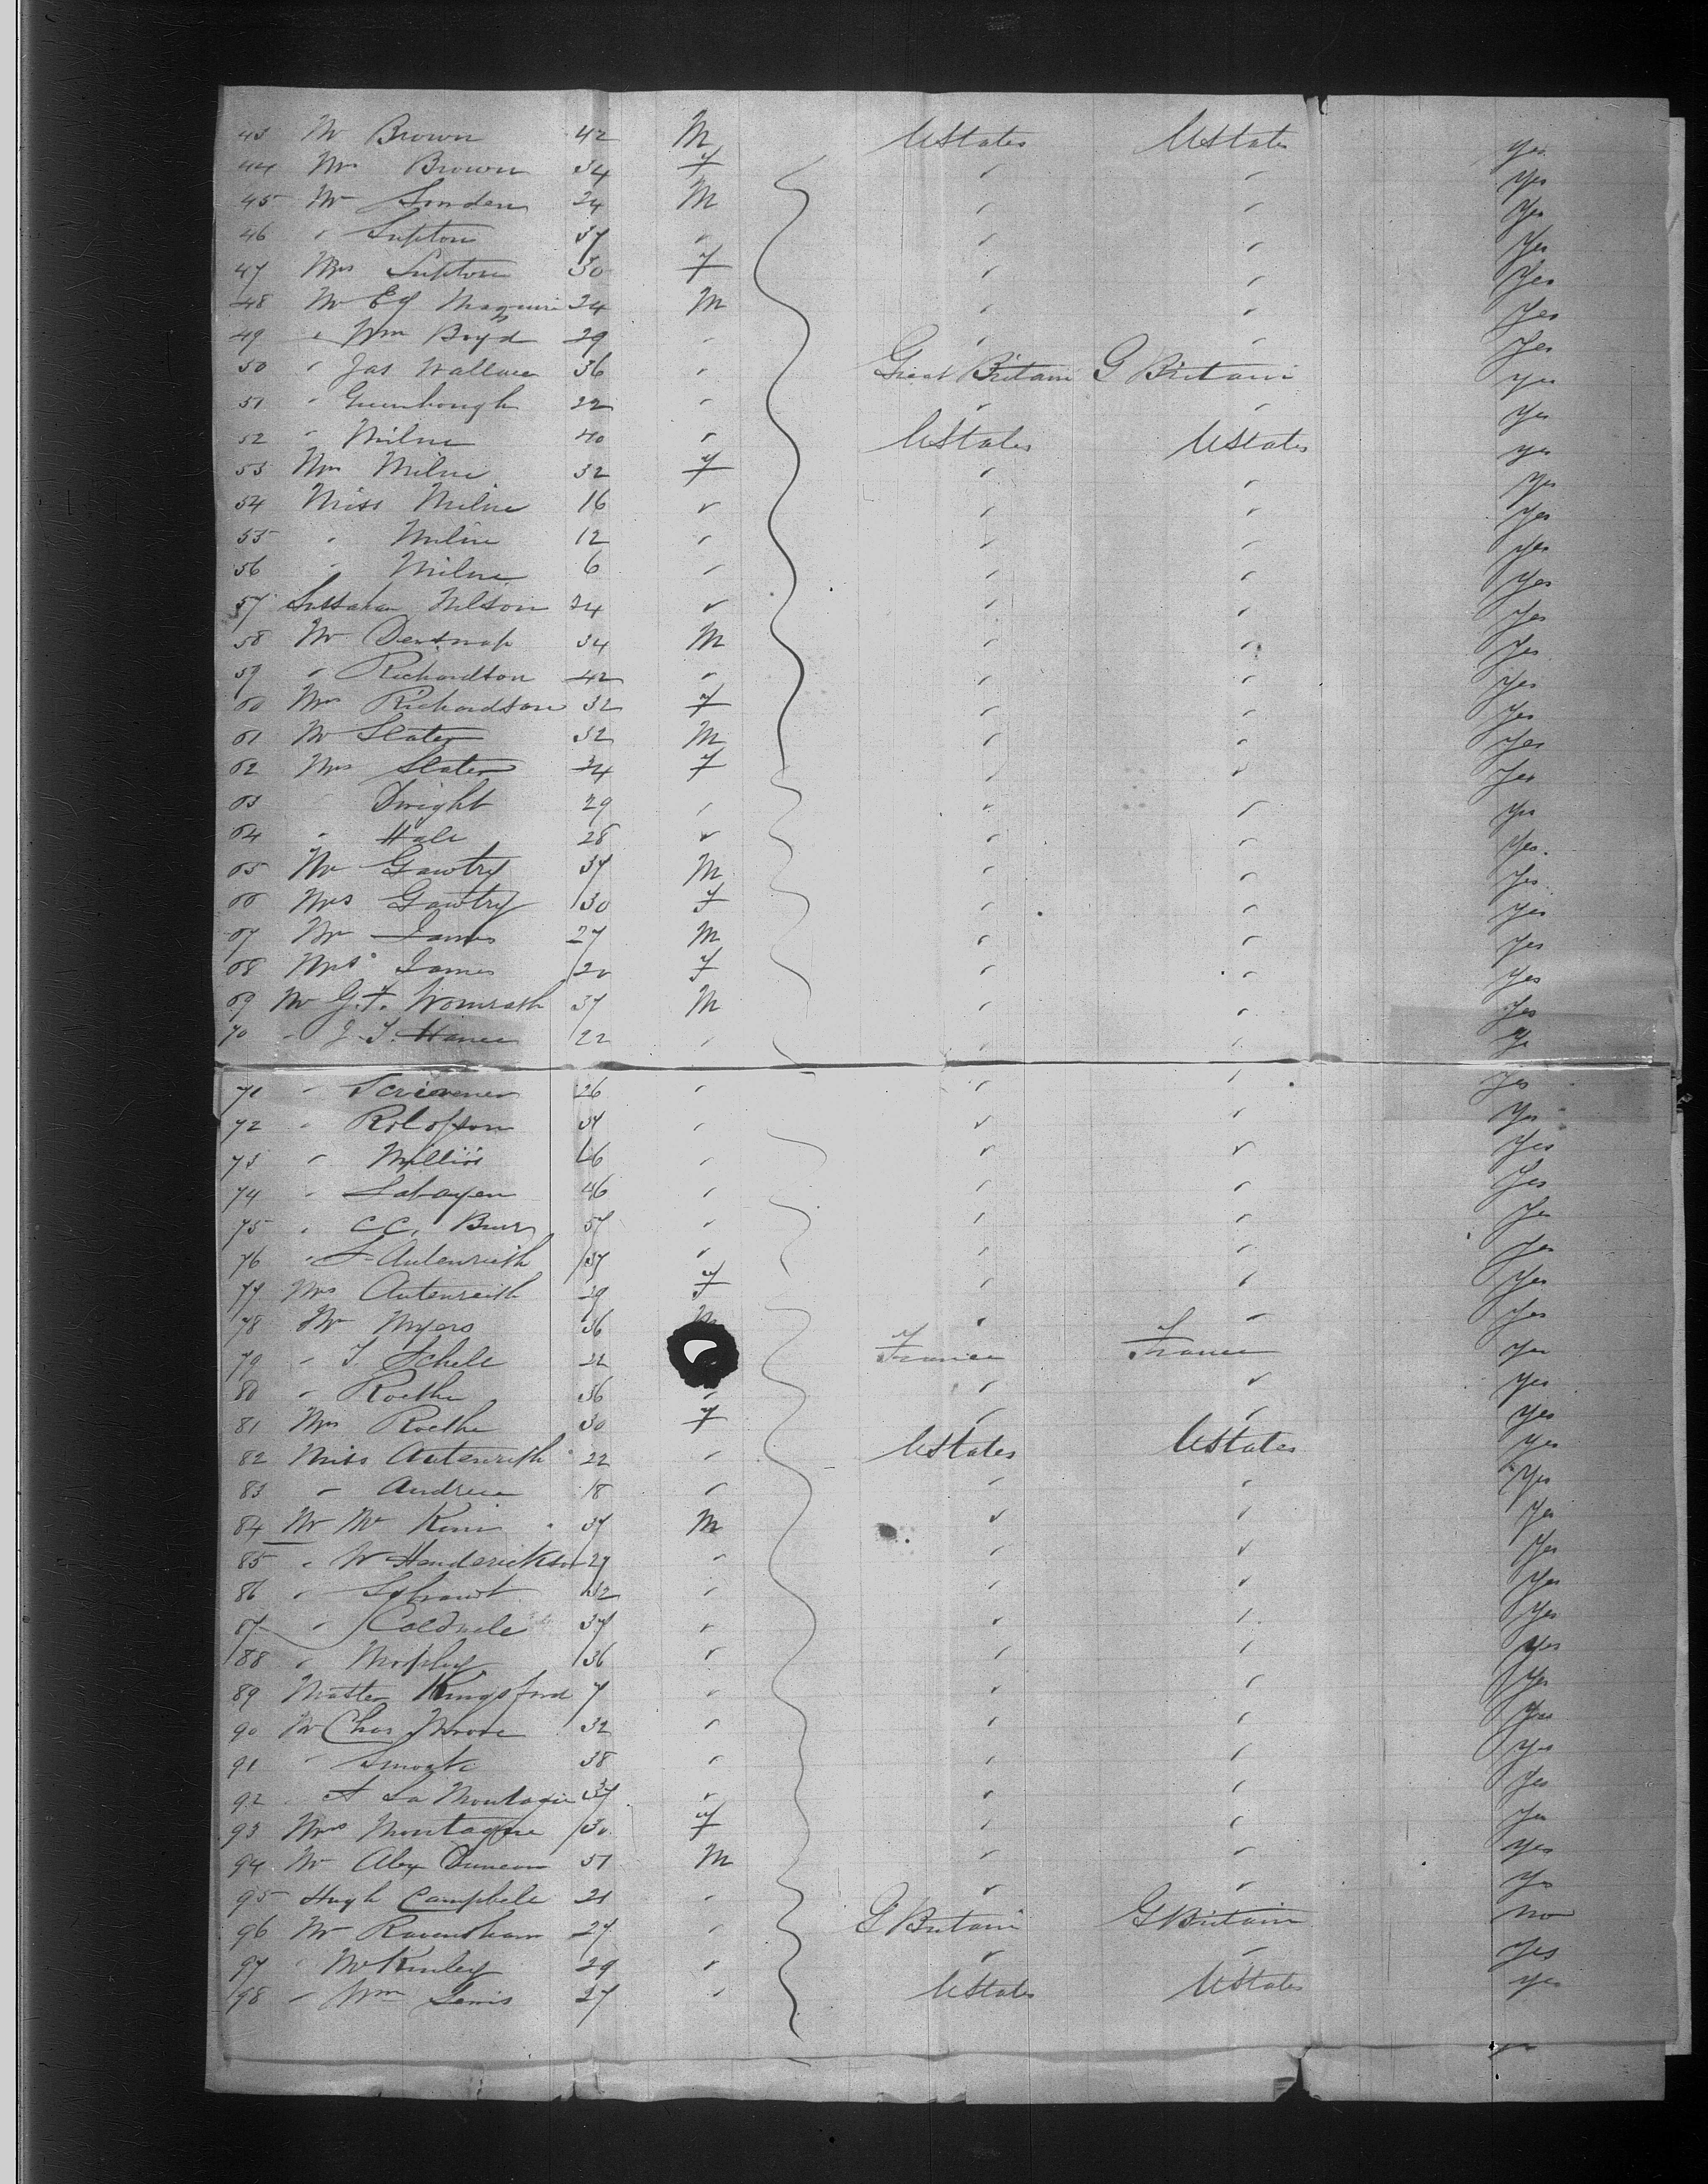 43 Mr Brown 42 M UStates UStates yes
44 Mrs Brown 34 F " " yes
45 Mr 24 M " " Yes
46 " Lupton 37 " " " Yes
47 Mrs Lupton 30 F " " Yes
48 Mr Maguire 24 M " " Yes
49 " Wm Boyd 29 " " " Yes
50 " Jas Wallace 36 " Great Britain G Britain yes
51 " 22 " " " yes
52 " Milne 40 " UStates UStates yes
53 Mrs Milne 32 F " " yes
54 Miss Milne 16 " " " yes
55 " Milne 12 " " " yes
56 " Milne 6 " " " yes
57 24 " " " yes
58 Mr 34 M " " yes
59 " Richardson 42 " " " yes
60 Mrs Richardson 32 F " " yes
61 Mr Slater 32 M " " yes
62 Mrs Slater 24 F " " yes
63 " Dwight 29 " " " yes
64 " Hale 28 " " " yes.
65 Mr Gawtry 37 M " " yes
66 Mrs Gawtry 30 F " " yes
67 Mr James 27 M " " yes
68 Mrs James 20 F " " yes
69 Mr G.F. Womrath 37 M " " yes
70 " Hance 22 " " "
71 " Scrivener 26 " " " yes
72 " Rolofson 37 " " " yes
73 " " " " yes
74 " Labayen 46 " " " yes
75 " C C. Burr 57 " " " yes
76 " Autenrieth 37 " " " yes
77 Mrs Autenrieth 29 F " " yes
78 Mr Myers 36 M " " yes
79 " Schele 22 France France yes
80 " Roethe 36 " " " yes
81 Mrs Roethe 30 F " " yes
82 Miss Autenrieth 22 " UStates UStates yes
83 " 18 " " " yes
84 Mr 37 M " " yes
85 " W Hendrickson 27 " " " yes
86 " 32 " " " yes
87 " Caldwele 37 " " " yes
88 " 36 " " " yes
89 Master Kingsford 7 " " " yes
90 Mr Chas Moore 32 " " " yes
91 " 38 " " " yes
92 " A La Montagne 37 " " " yes
93 Mrs Montagne 30 F " " yes
94 Mr Alex Duncan 51 M " " yes
95 Hugh Campbele 21 " " " yes
96 Mr 27 " G Britain G Britain no
97 " McKinley 29 " " " yes
98 " Wm Lewis 27 " UStates UStates yes